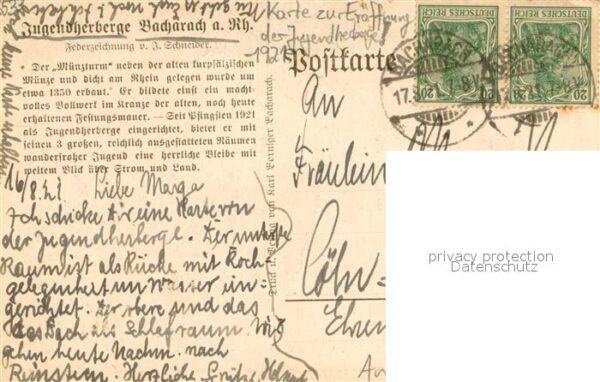 Jugendherberge Bacharach a. Rh.
Federzeichnung v. J. Schneider.
Der „Münzturm" neben der alten kurpfälzischen
Münze und dicht am Rhein gelegen wurde um
etwa 1350 erbaut. Er bildete einst ein macht-
volles Bollwerk im Kranze der alten, noch heute
erhaltenen Festungsmauer. — Seit Pfingsten 1921
als Jugendherberge eingerichtet, bietet er mit
seinen 3 großen, reichlich ausgestatteten Räumen
wandersfroher Jugend eine herrliche Bleibe mit
weitem Blick über Strom und Land.
16/8.21 Liebe Marga
Ich schicke dir eine Karte von
der Jugendherberge. Der untere
Raum ist als Küche mit Koch-
gelegenheit und Wasser ein-
gerichtet. Der obere und das
Dach als Schlafraum. Wir
gehen heute Nachm. nach
Rheinstein. Herzliche Grüße Helmut
Druck u. Verlag von Karl Berniger Bacharach.
Karte zur Eröffnung
der Jugendherberge
1921
Postkarte
An
Fräulein
Cöln-
Ehren
DEUTSCHES REICH
20
20
DEUTSCHES REICH
20
BACHARACH
17.8
privacy protection
Datenschutz